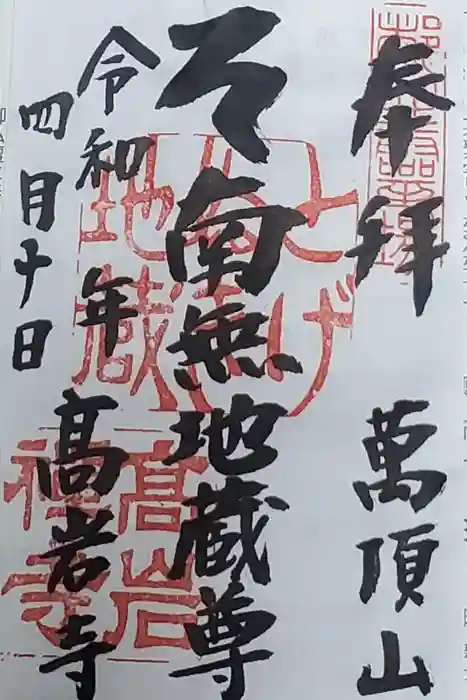 奉拝 萬頂山
南無地蔵尊
令和 年
四月十日
高岩寺
とげ
ぬき
地蔵
高岩
禅寺